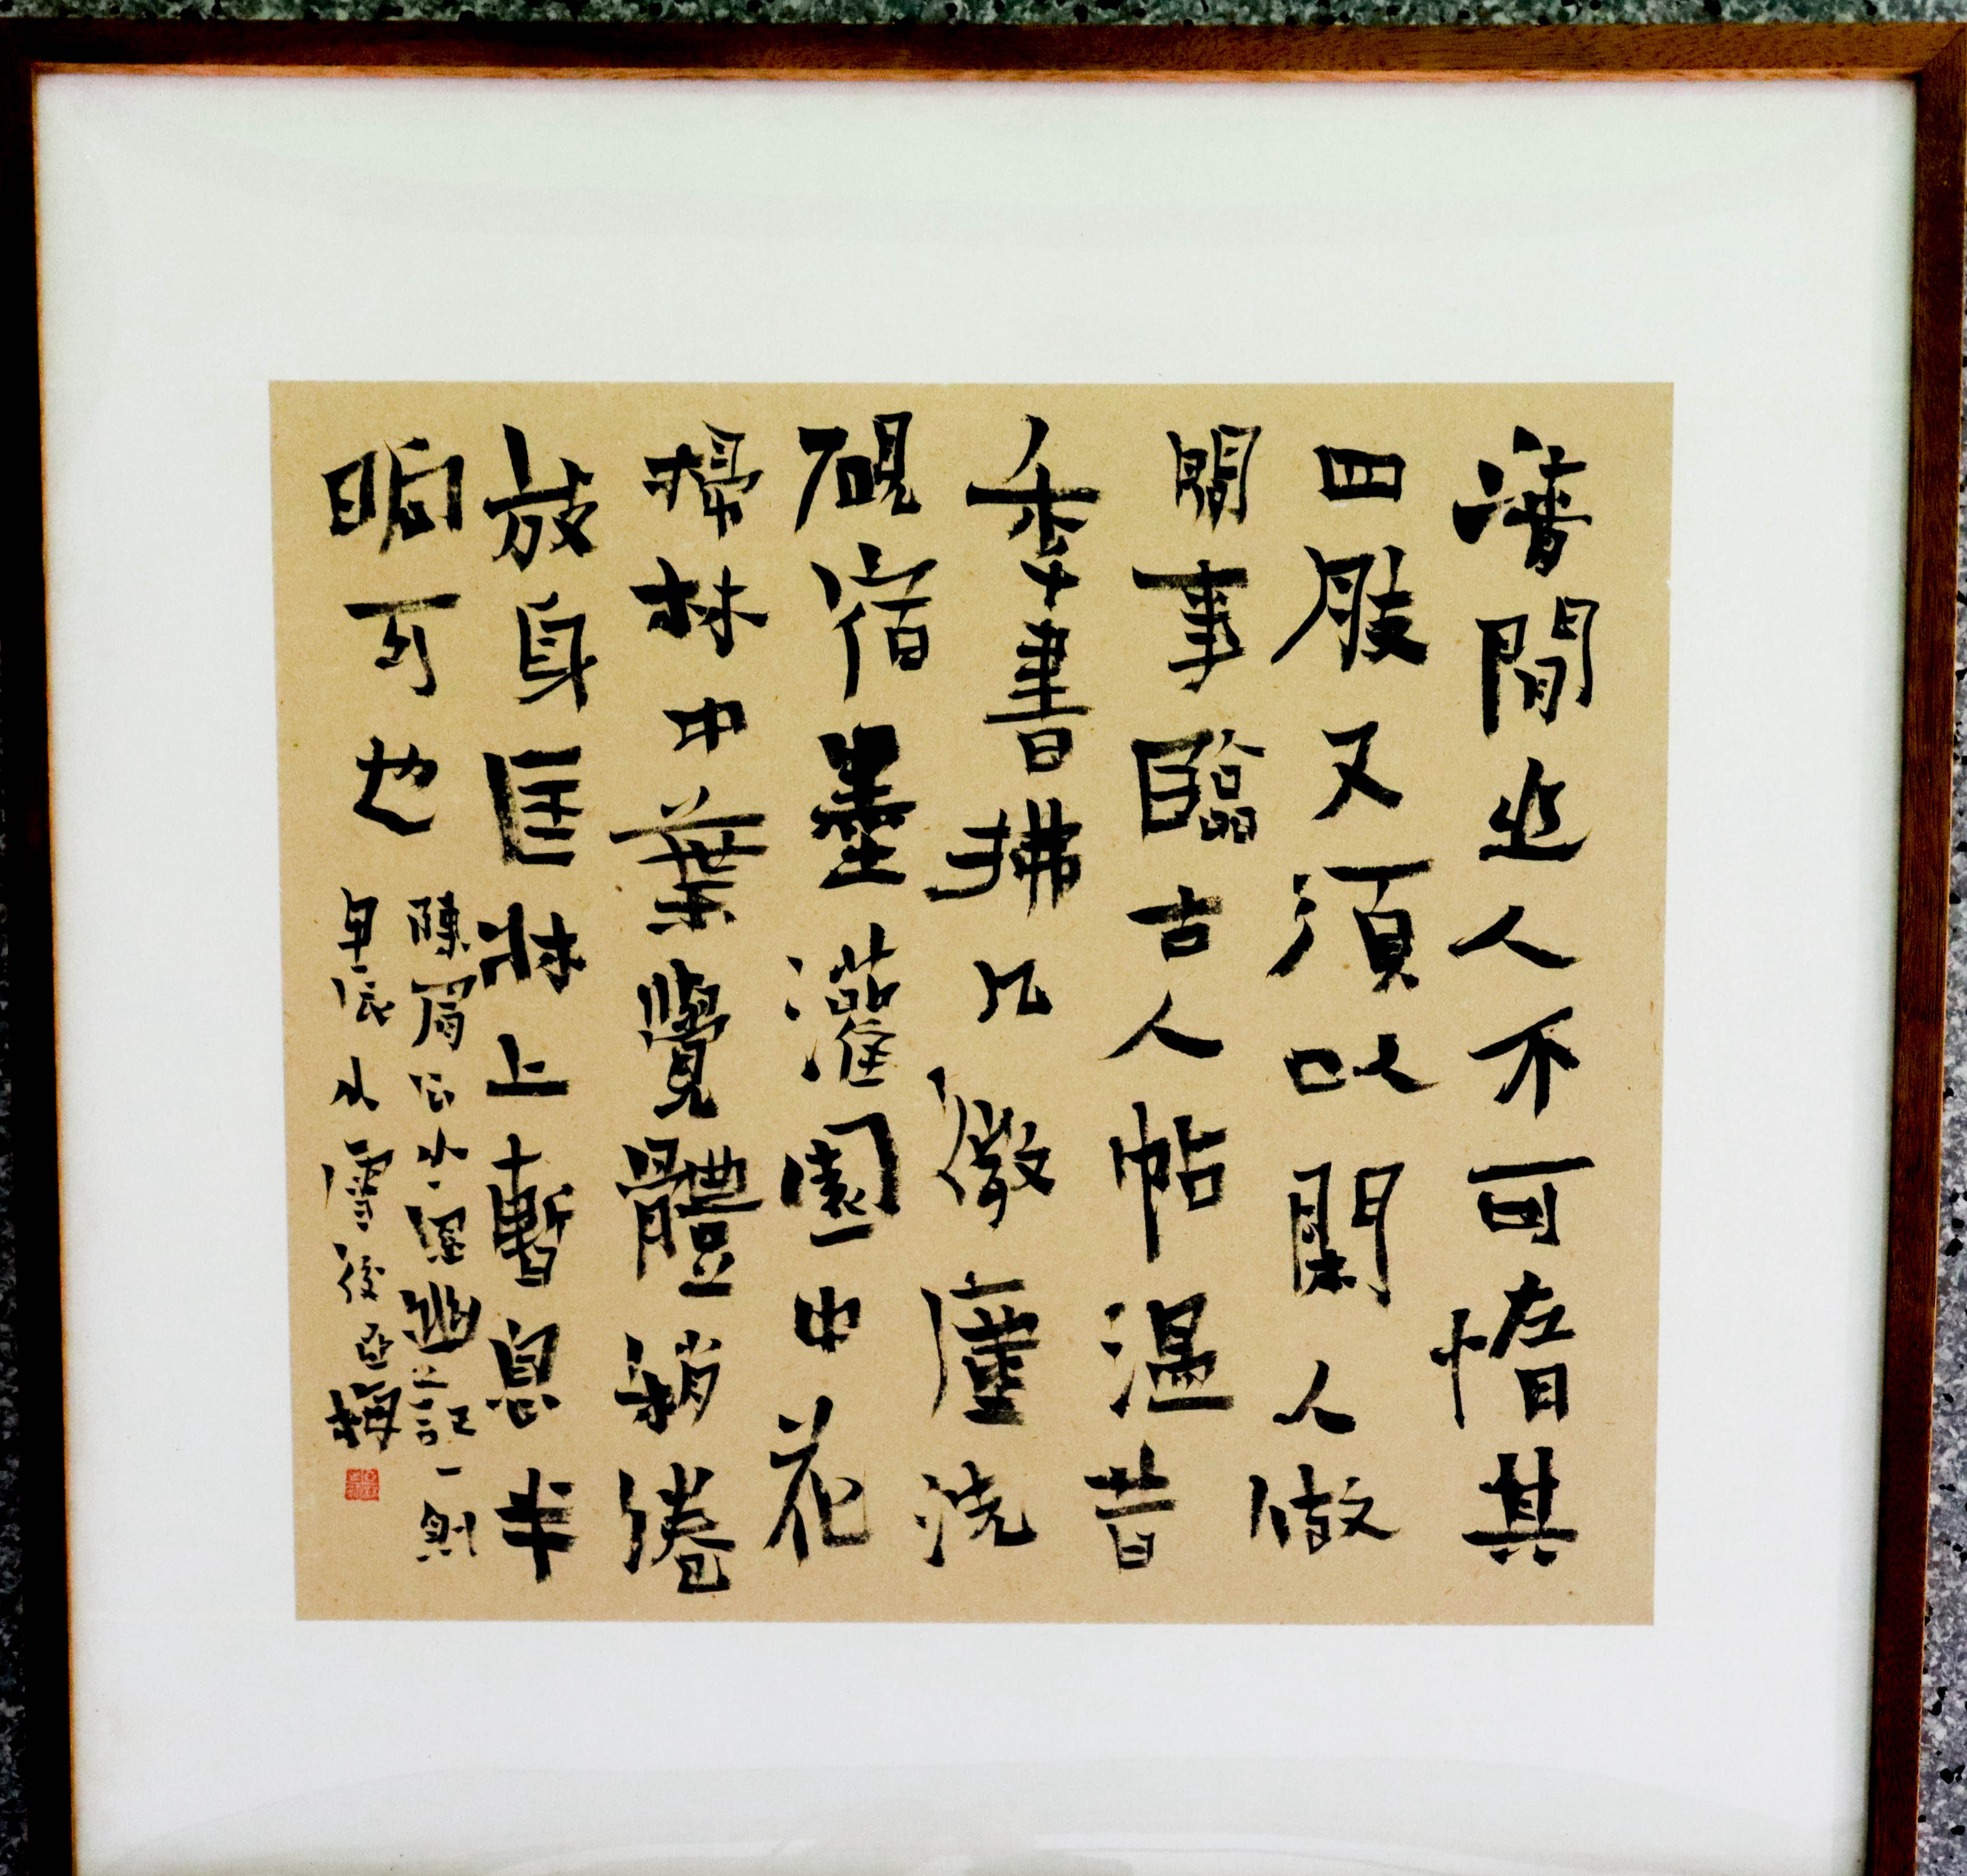 清閒之人不可惰其
四肢又須以閒人做
閒事臨古人帖溫昔
年書拂几微塵洗
硯宿墨灌園中花
掃林中葉覺體稍倦
放身匡牀上暫息半
晌可也
陳眉公小窗幽記一則
甲辰小雪後亞梅